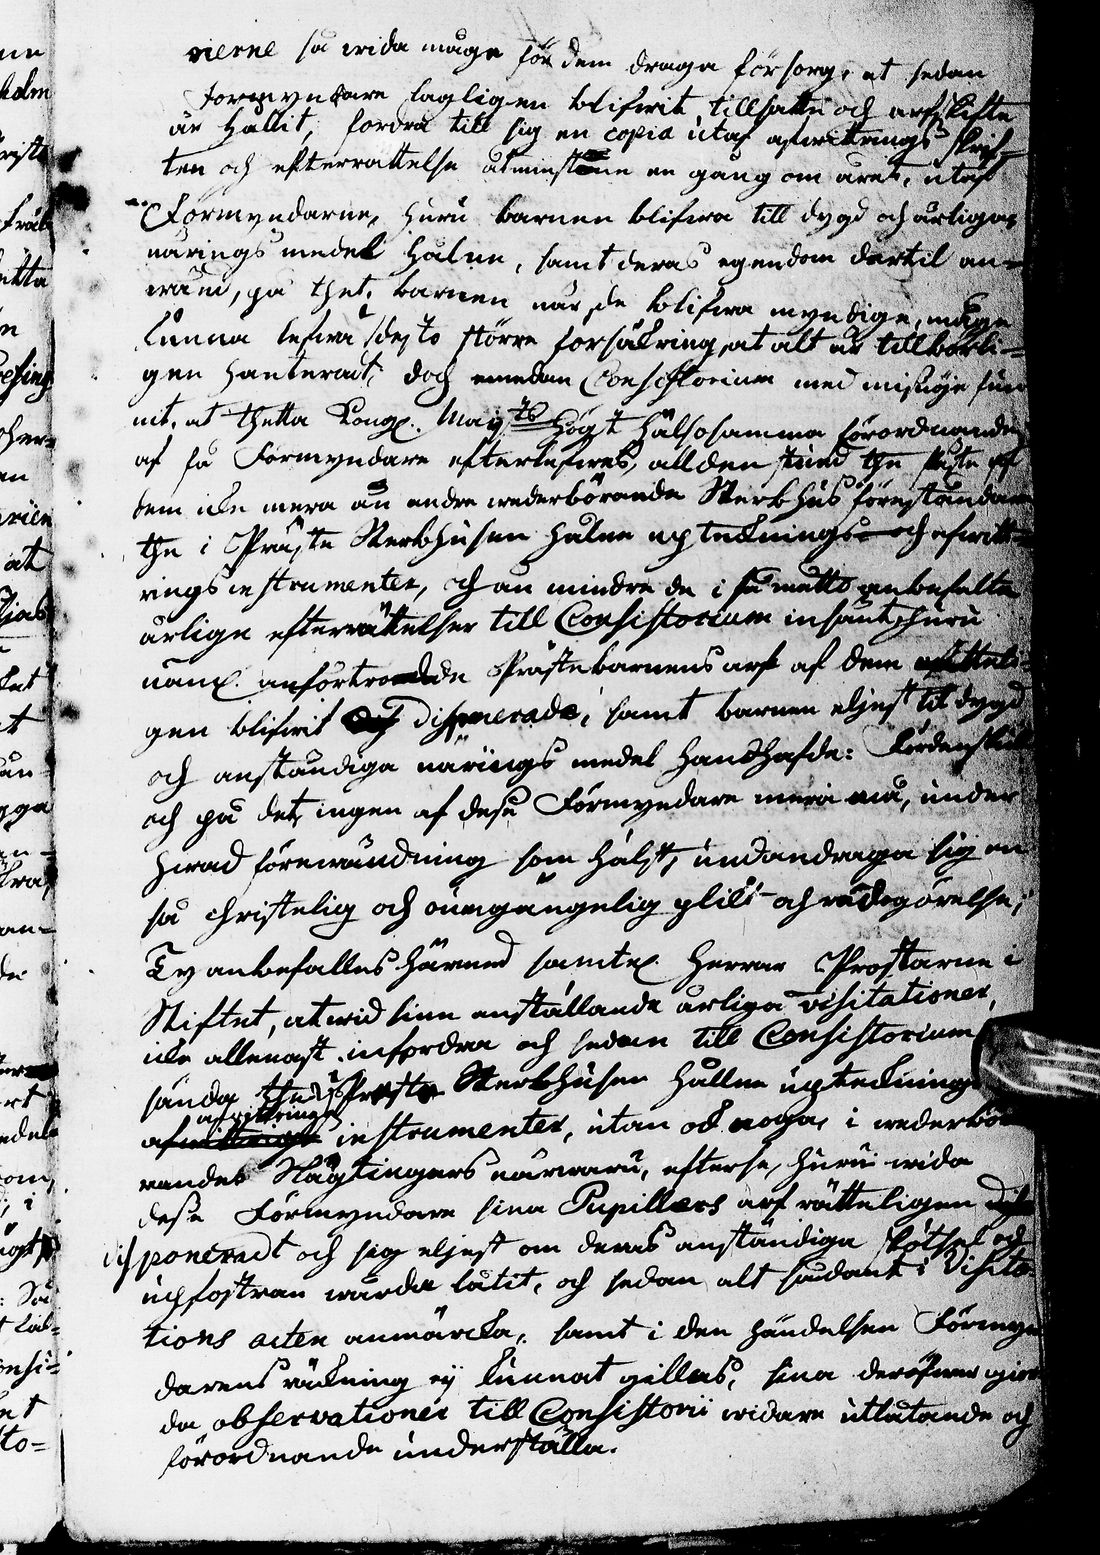 rierne så wida måge för dem draga försorg, at sedan
Formyndare lagligen blifwit tillsatte och arfskifte
är hållit, fordra till sig en copia utaf afwittrings skrif-
ten och efterrättelse åtminstone en gång om året, utaf
Förmyndarne, huru barnen blifwa till dygd och ärliga
närings medel hålne, samt deras egendom dertil an-
wänd, på thet, barnen när de blifwa myndige, måge
kunna lefwa desto större försäkring, at alt är tillbörli-
gen hanterat, doch emedan Consistorium med misnöje fun-
nit, at thetta Kongl. Maij:ts högst hälsosamma förordnande
af få Formyndare efterlefwes, allden stund the fleste af
dem icke mera än andre wederbörande Sterbhus föreståndare
the i Präste Sterbhusen hålne upteknings- och afwitt-
rings instrumenter, och än mindre de i så matto anbefalte
årlige efterrättelser till Consistorium insändt, huru
nampl. anförtrodde Prästebarnens arf af dem
gen blifwit disponerade, samt barnen eljest til dygd
och anständiga närings medel handhafde: Fördenskull
och på det, ingen af desse Förmyndare mera må, under
hwad förewändning som hälst, undandraga sig en
så christelig och oumgängelig plikt och redogörelse;
Ty anbefalles härmed samtel. Herrar Prostarne i
Stiftet, at wid sine anställande årliga visitationer,
icke allenast infordra och sedan till Consistorium
sända the i Präste Sterbhusen hållne uptecknings
afwittrings instrumenter, utan ock noga, i wederbö-
randes Slägtingers närwaru, efterse, huru wida
desse Förmyndare sina Pupillers arf rätteligen
disponeradt och sig eljest om deras anständiga skötsel och
upfostran wårda låtit, och sedan alt sådant i Visita-
tions acten anmärcka, samt i den händelsen Förmyn-
darens räckning ej kunnat gillas, sina deröfwer gior-
da observationer till Consistorii widare utlåtande och
förordnande underställa.